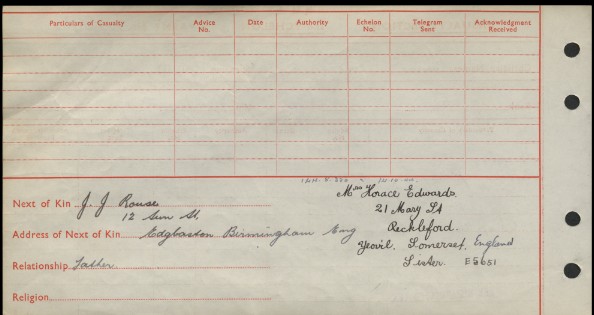 Particulars of Casualty
Advice No.
Date
Authority
Echelon No.
Telegram Sent
Acknowledgment Received
Next of Kin J. J Rouse
12 Sun St.
Address of Next of Kin Edgbaston Birmingham Eng
Relationship Father
Religion
Mrs Horace Edwards.
21 Mary St
Reckleford.
Yeovil. Somerset, England
Sister. E5651